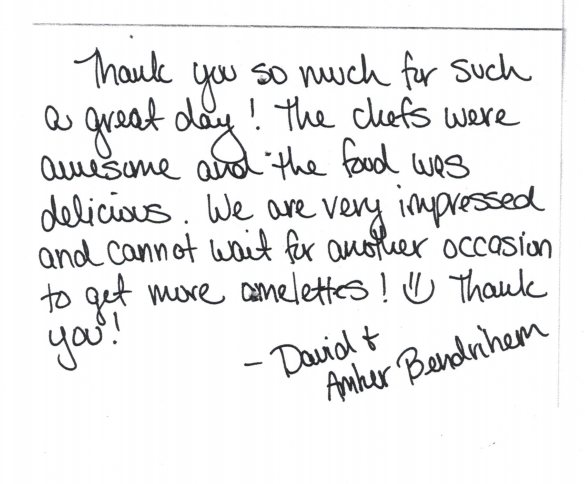 Thank you so much for such
a great day! The chefs were
awesome and the food was
delicious. We are very impressed
and cannot wait for another occasion
to get more omelettes! Thank
you!
- David +
Amber Bendrihem